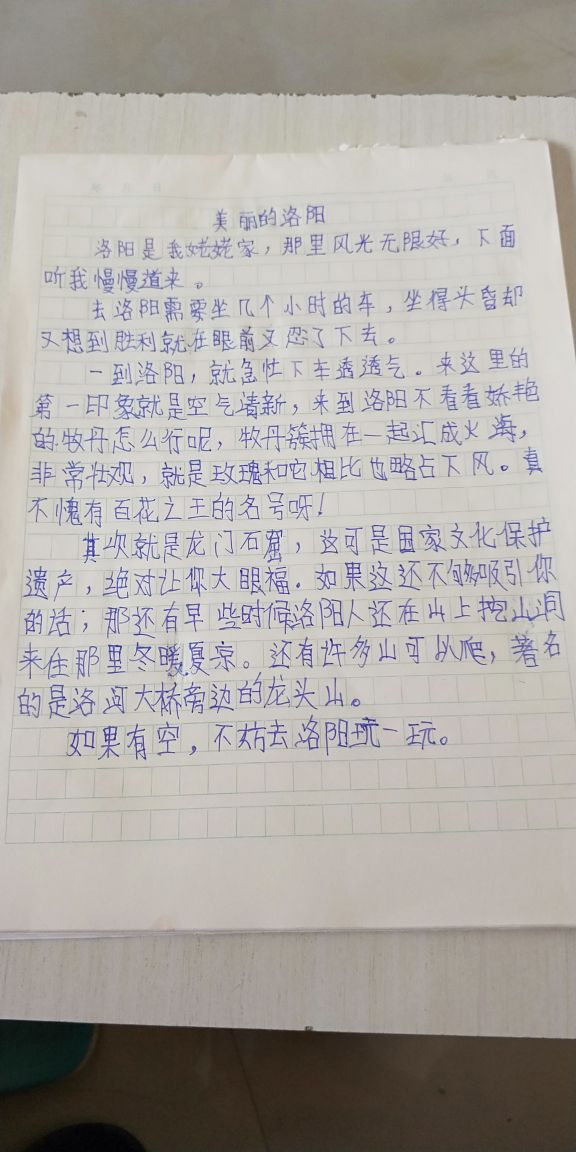 美丽的洛阳
洛阳是我姥姥家，那里风光无限好，下面
听我慢慢道来。
去洛阳需要坐几个小时的车，坐得头昏却
又想到胜利就在眼前又忍了下去。
一到洛阳，就急忙下车透透气。来这里的
第一印象就是空气清新，来到洛阳不看看娇艳
的牧丹怎么行呢，牧丹簇拥在一起汇成火海，
非常壮观，就是玫瑰和它相比也略占下风。真
不愧有百花之王的名号呀！
其次就是龙门石窟，这可是国家文化保护
遗产，绝对让你大眼福。如果这还不够吸引你
的话；那还有早些时候洛阳人还在山上挖山洞
来住那里冬暖夏凉。还有许多山可以爬，著名
的是洛河大桥旁边的龙头山。
如果有空，不妨去洛阳玩一玩。